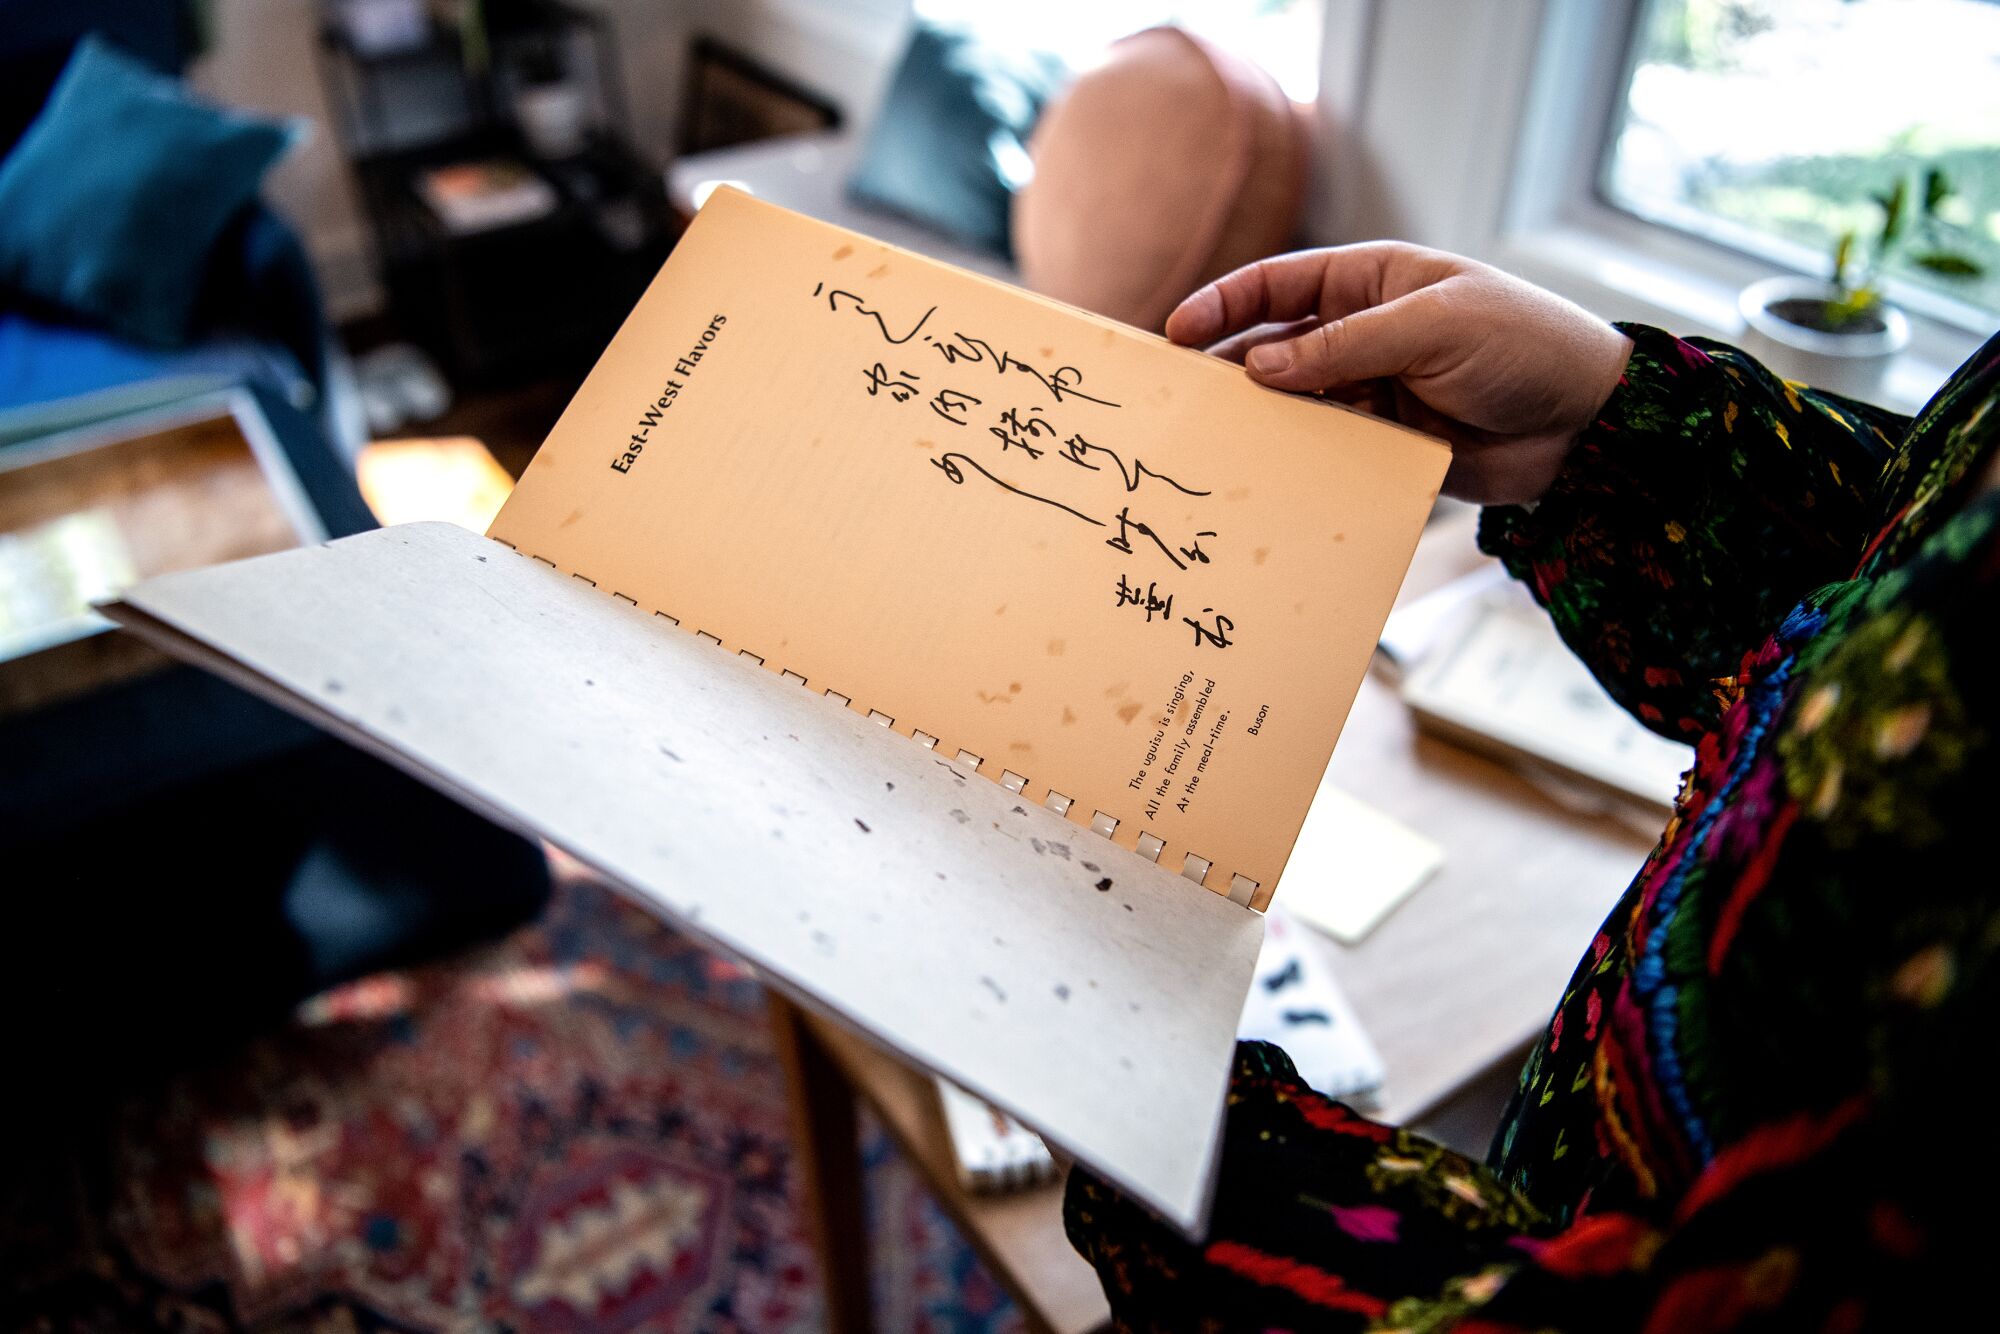 East-West Flavors
うくひすや
家内揃
めし時分
蕪村
The uguisu is singing,
All the family assembled
At the meal-time.
Buson